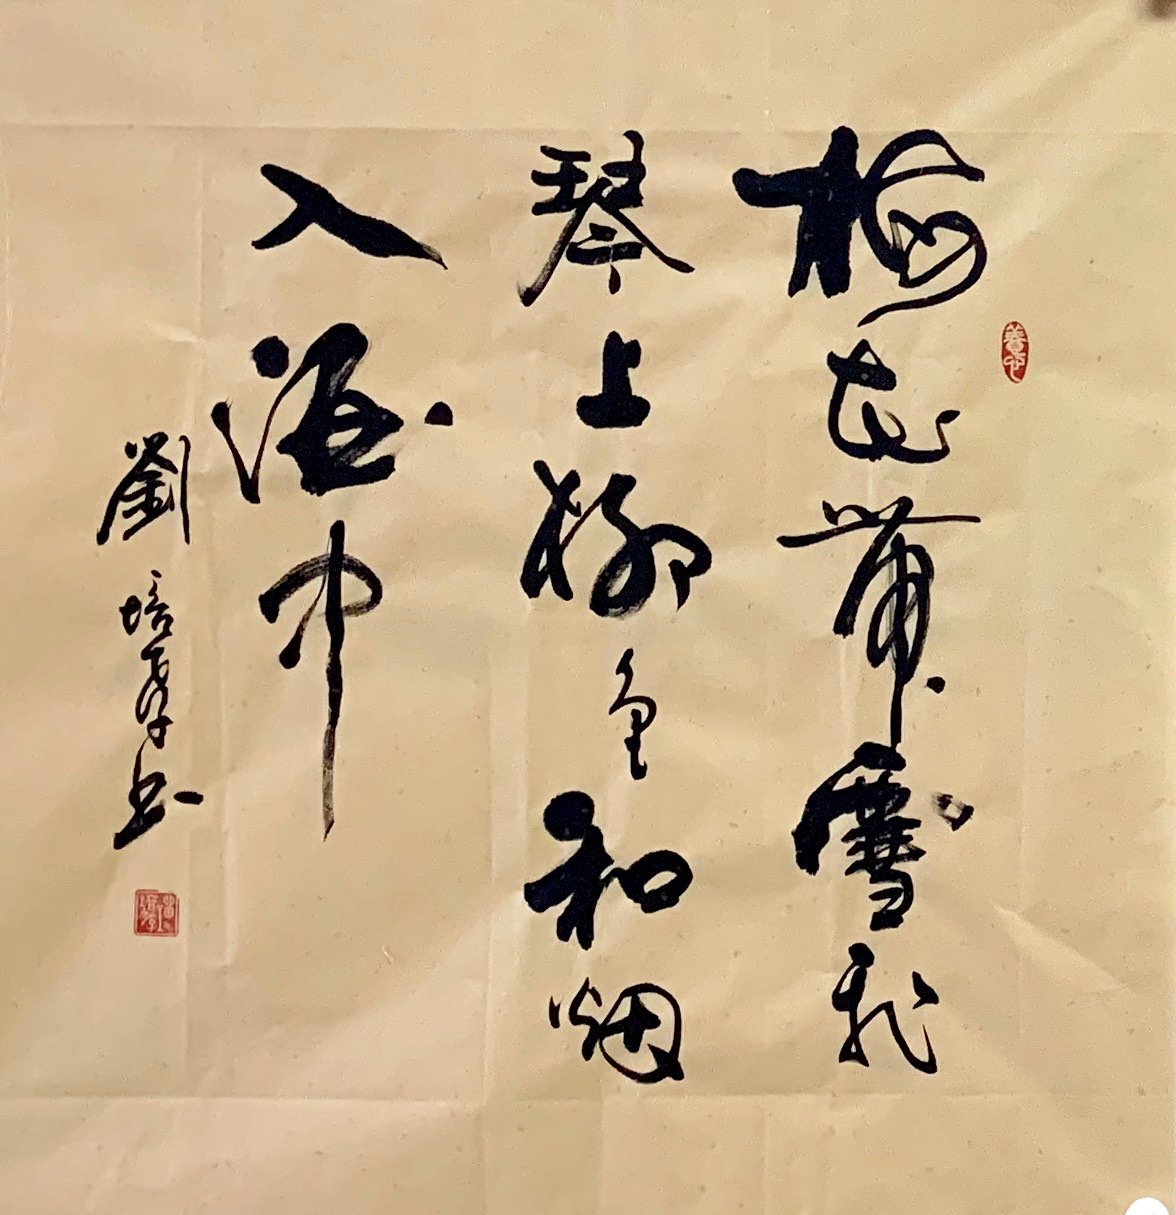 梅花帶雪飛
琴上柳色和烟
入酒中
劉培书